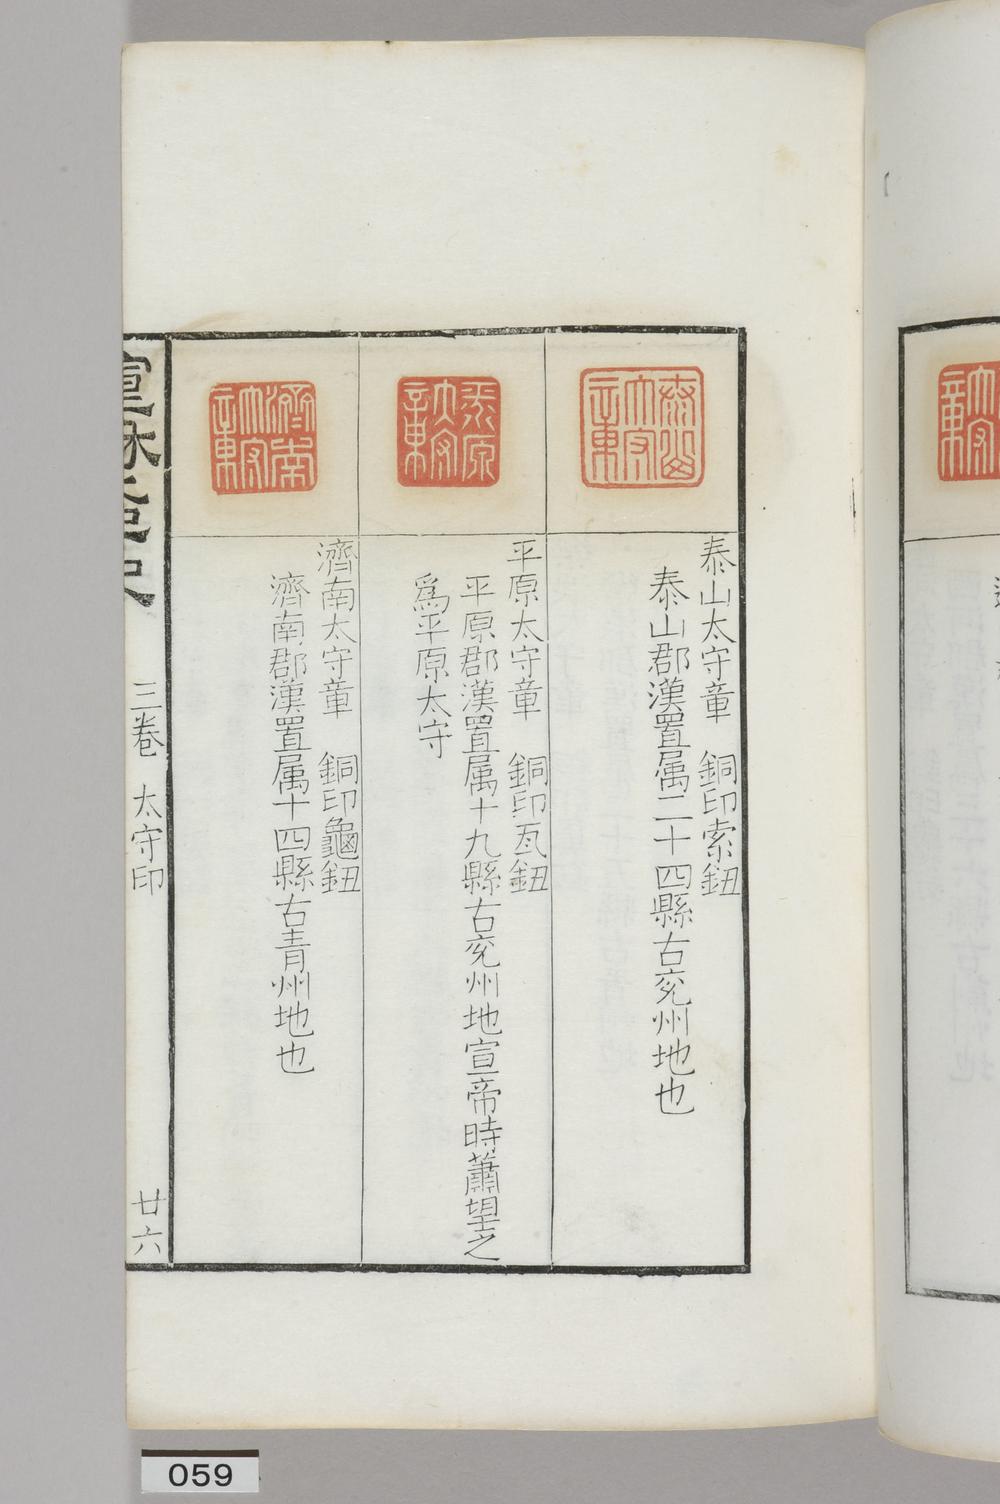 泰山太守章
泰山太守章　銅印索鈕
泰山郡漢置属二十四縣古兖州地也
平原太守章
平原太守章　銅印瓦鈕
平原郡漢置属十九縣古兖州地宣帝時蕭望之
為平原太守
濟南太守章
濟南太守章　銅印龜鈕
濟南郡漢置属十四縣古青州地也
三卷　太守印
廿六
059